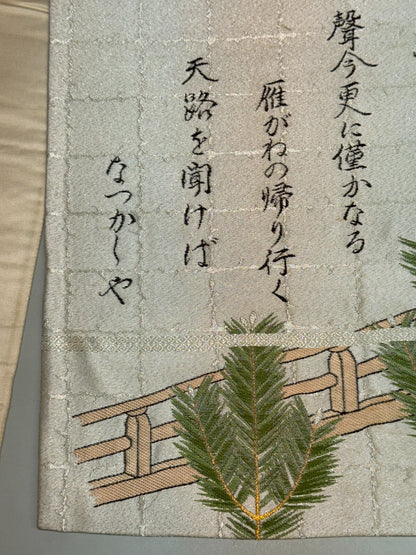 聲今更に僅かなる
雁がねの帰り行く
天路を聞けば
なつかしや